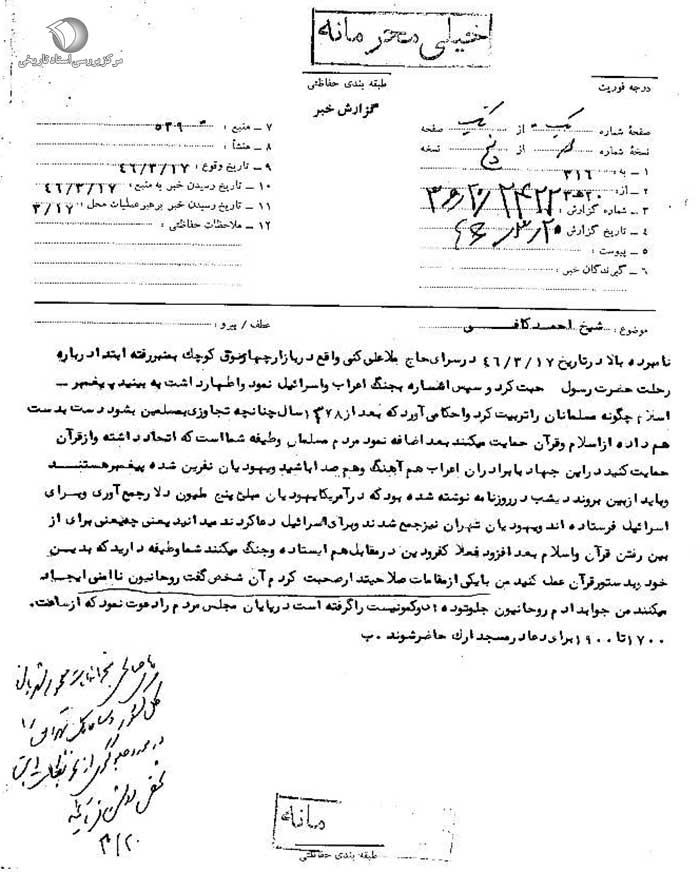 مرکز بررسی اسناد تاریخی
خیلی محرمانه
طبقه بندی حفاظتی
درجه فوریت
گزارش خبر
صفحهٔ شماره یک از یک صفحه
نسخهٔ شماره از نسخه
۱ ـ به: ۳۱۶
۲ ـ از: ۲۰ ه ۳
۳ ـ شماره گزارش:
۴ ـ تاریخ گزارش ۴۶/۳/۲۰
۵ ـ پیوست:
۶ ـ گیرندگان خبر:
۷ ـ منبع: ۵۳۹۰
۸ ـ منشأ:
۹ ـ تاریخ وقوع: ۴۶/۳/۱۷
۱۰ ـ تاریخ رسیدن خبر به منبع: ۴۶/۳/۱۷
۱۱ ـ تاریخ رسیدن خبر برهبر عملیات محل: ۳/۱۷
۱۲ ـ ملاحظات حفاظتی:
موضوع: شیخ احمد کافی
عطف / پیرو:
نامبرده بالا در تاریخ ۴۶/۳/۱۷ در سرای حاج ملاعلی کنی واقع در بازار چهارسوق کوچک بمنبر رفته ابتدا درباره
رحلت حضرت رسول حبت کرد و سپس اشاره بجنگ اعراب واسرائیل نمود واظهار داشت به بینید پیغمبر ـ
اسلام چگونه مسلمانان را تربیت کرد واحکامی آورد که بعد از ۱۳۷۸ سال چنانچه تجاوزی بمسلمین بشود دست بدست
هم داده از اسلام وقرآن حمایت میکنند بعد اضافه نمود مردم مسلمان وظیفه شما است که اتحاد داشته واز قرآن
حمایت کنید در این جهاد با برادران اعراب هم آهنگ وهم صدا باشید ویهودیان نفرین شده پیغمبر هستند
وباید از بین بروند دیشب در روزنامه نوشته شده بود که در آمریکا یهودیان مبلغ پنج ملیون دلار جمع آوری وبرای
اسرائیل فرستاده اند ویهودیان تهران نیز جمع شدند وبرای اسرائیل دعا کردند میدانید یعنی چه یعنی برای از
بین رفتن قرآن واسلام بعد افزود فعلا کفرودین در مقابل هم ایستاده وجنگ میکنند شما وظیفه دارید که بدین
خود وبدستور قرآن عمل کنید من با یکی از مقامات صلاحیتدار صحبت کردم آن شخص گفت روحانیون ناامنی ایجاد
میکنند من جواب دادم روحانیون جلو توده ای وکمونیست را گرفته است در پایان مجلس مردم را دعوت نمود که از ساعت.
۱۷۰۰ تا ۱۹۰۰ برای دعا در مسجد ارک حاضر شوند. ب
۳/۲۰
مانه
طبقه بندی حفاظتی